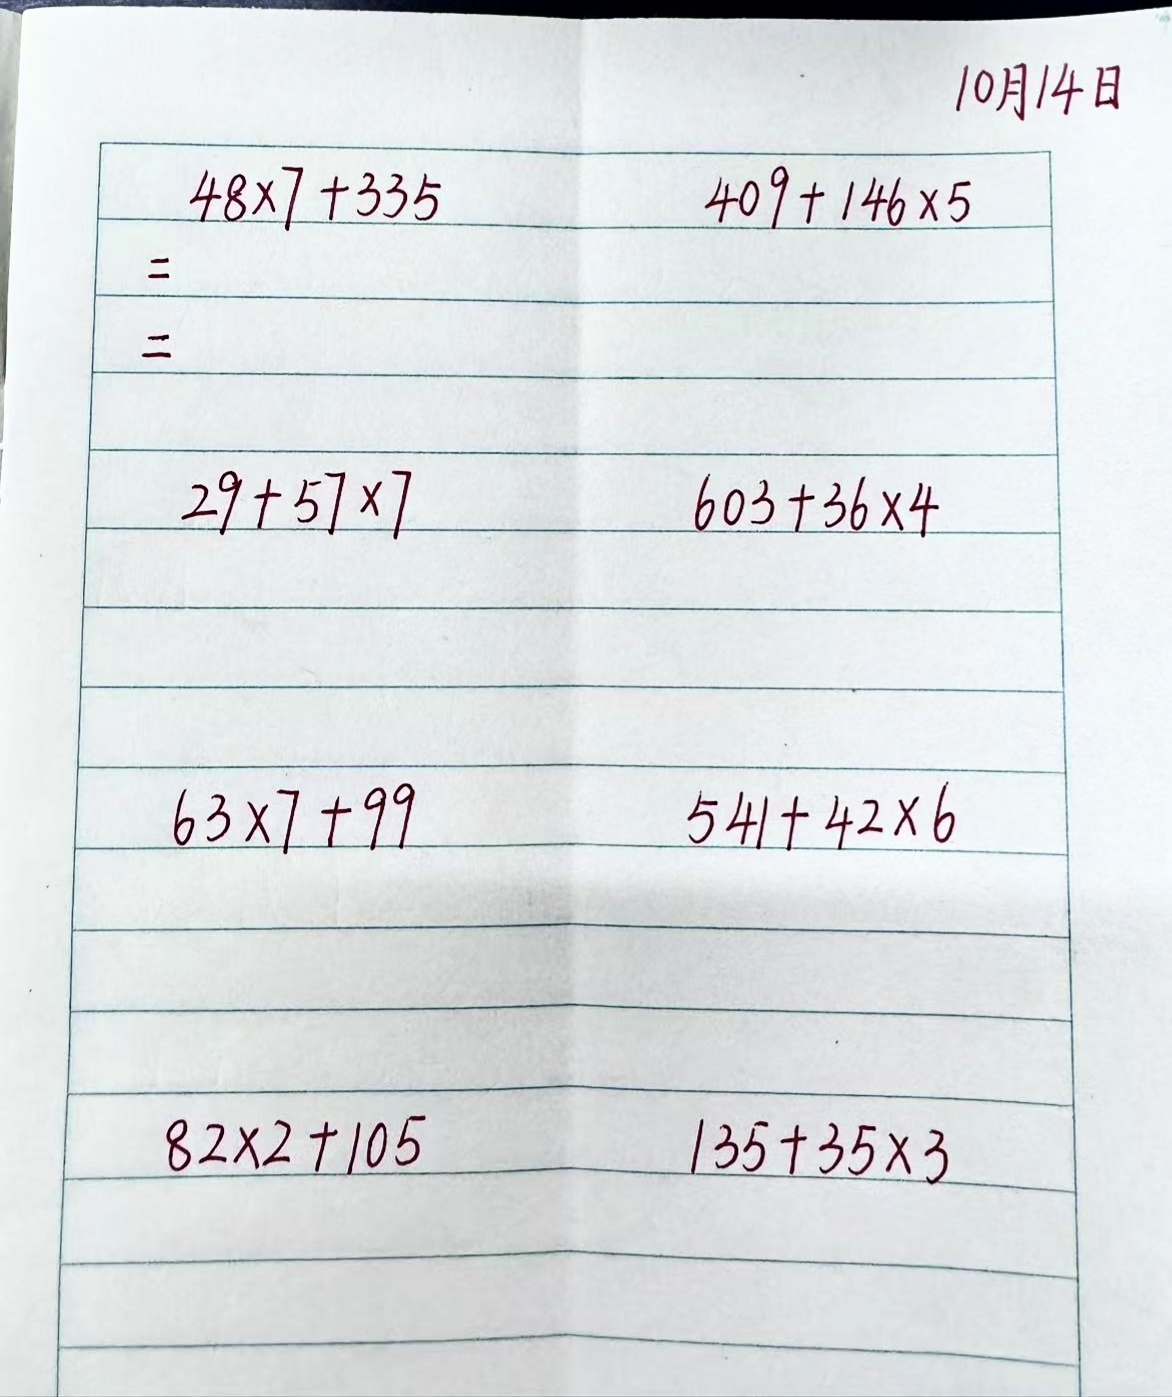 10月14日
48×7+335 409+146×5
=
=
29+57×7 603+36×4
63×7+99 541+42×6
82×2+105 135+35×3